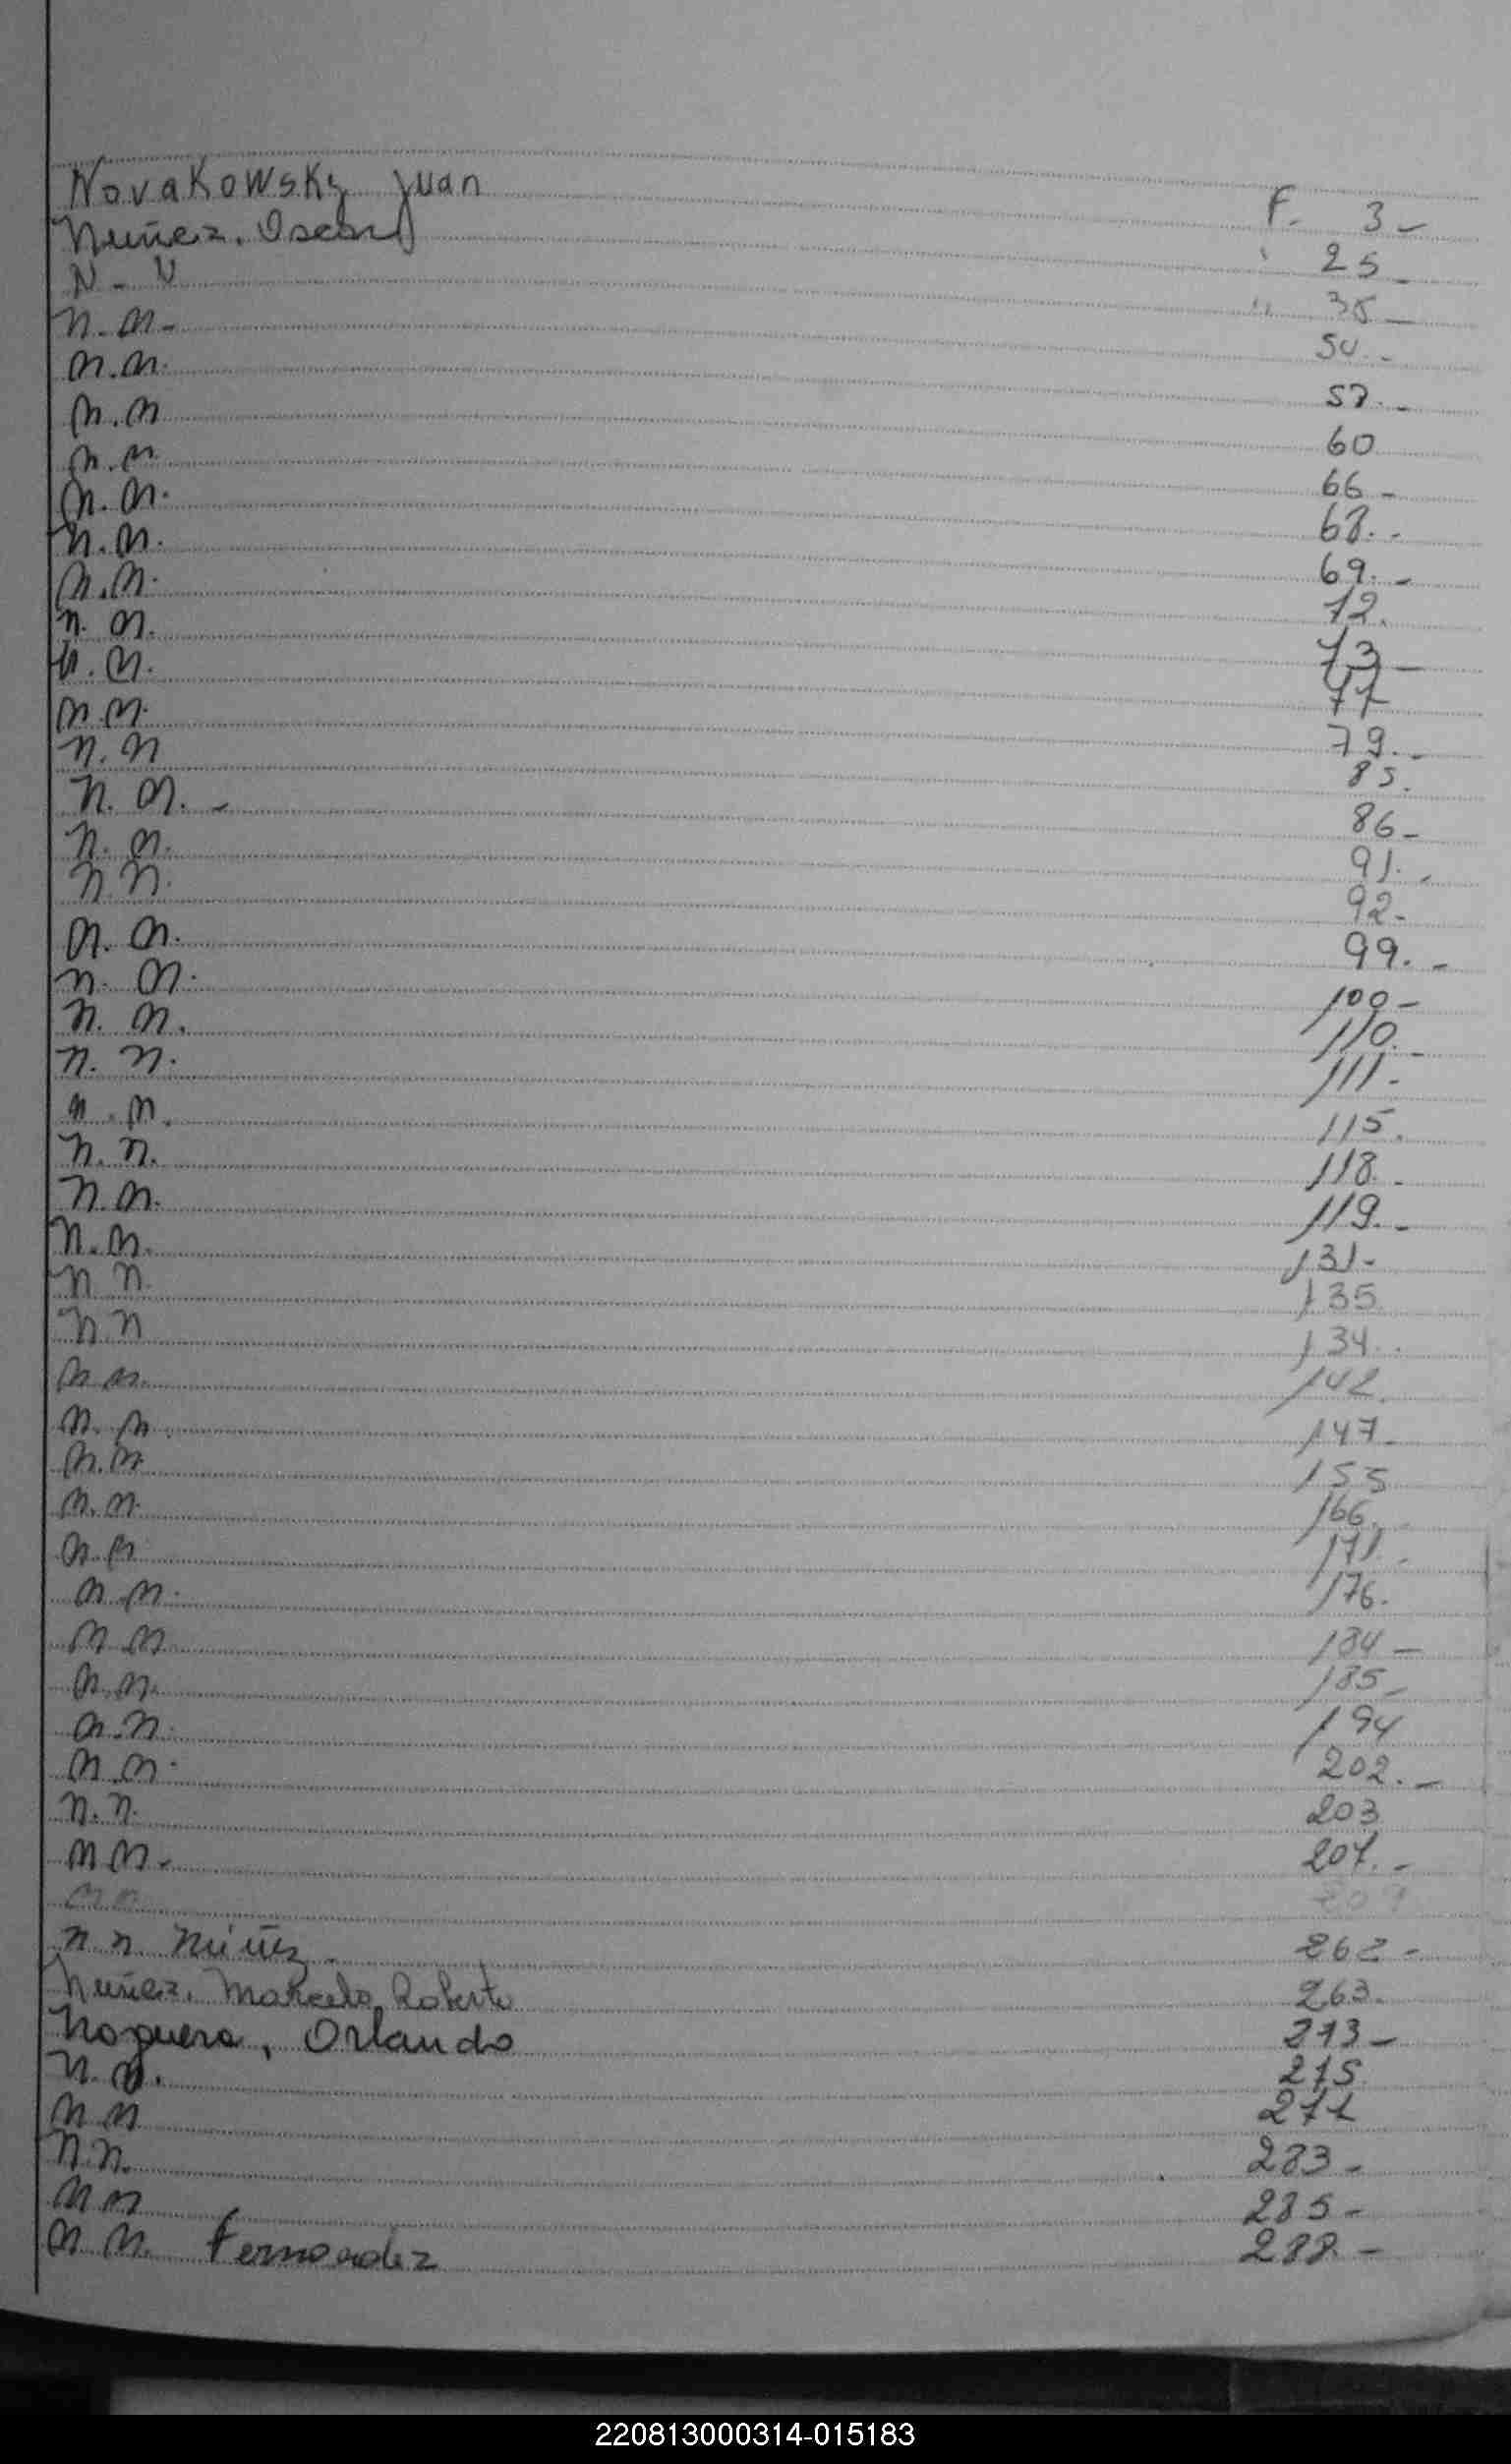 Novakowsky Juan F. 3-
Nuñez. Oscar 25-
N-N " 35-
n.n.- 50.-
n.n. 57.-
n.n 60
n.n. 66-
n.n. 68.-
n.n. 69.-
n.n. 72.
n. n. 73-
n.n. 77
n.n. 79.-
n.n 85.
n. n. - 86-
n. n. 91.-
n.n. 92.-
n. n. 99.-
n. n. 100-
n. n. 110.-
n. n. 111.-
n.n. 115.
n. n. 118.-
n.n. 119.-
n.n. 131-
n n. 135
n n 134.
n n. 142.
n. n. 147-
n.n 155
n.n. 166.
n.n 171.-
n.n. 176.
n n 184-
n.n. 185-
n.n. 194
n.n. 202.-
n.n. 203
n n.- 207.-
n n 209
n n Núñez 262-
Nuñez. Marcelo, Roberto 263.
Noguera, Orlando 273-
n.n. 275
n n 277
n.n. 283-
n n 285-
n.n. Fernandez 288.-
220813000314-015183